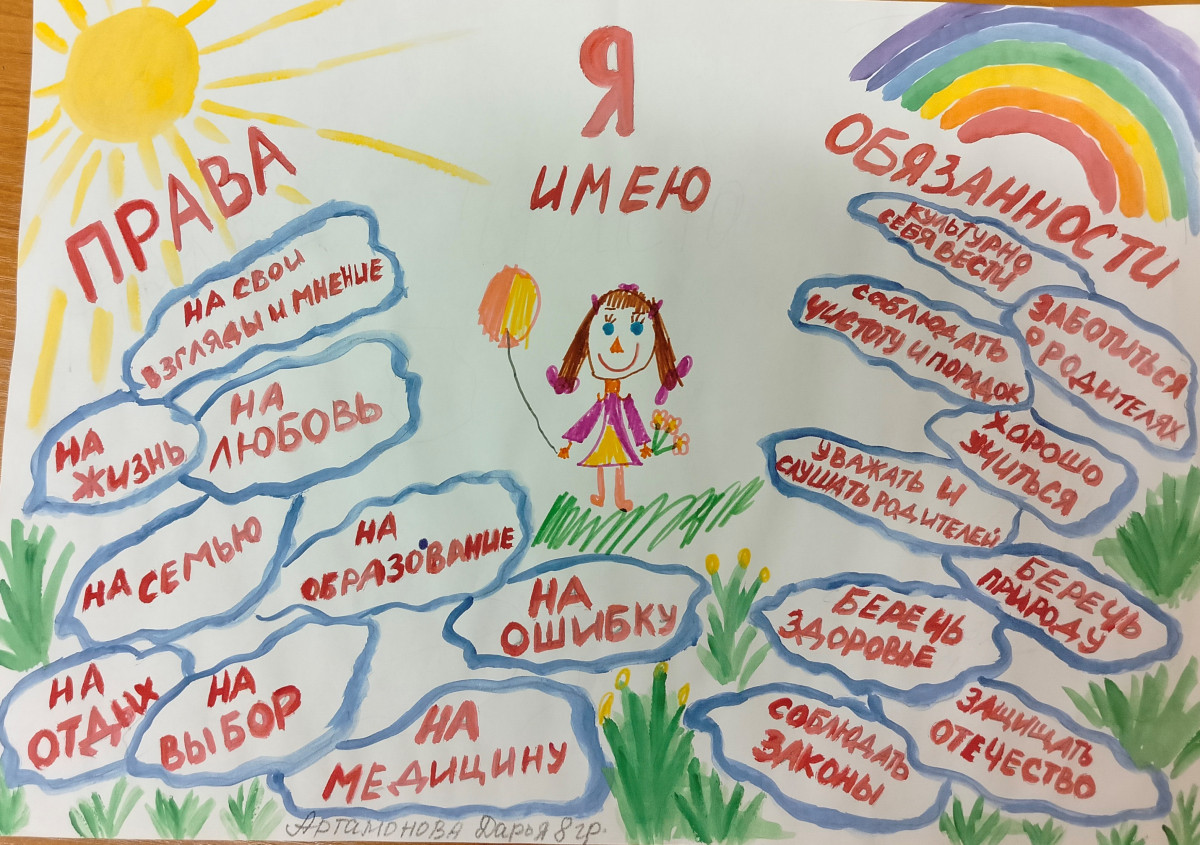 Я
ИМЕЮ
ПРАВА
НА СВОИ
ВЗГЛЯДЫ И МНЕНИЕ
НА
ЛЮБОВЬ
НА
ЖИЗНЬ
НА СЕМЬЮ
НА
ОБРАЗОВАНИЕ
НА
ОШИБКУ
НА
ОТДЫХ
НА
ВЫБОР
НА
МЕДИЦИНУ
ОБЯЗАННОСТИ
КУЛЬТУРНО
СЕБЯ ВЕСТИ
СОБЛЮДАТЬ
ЧИСТОТУ И ПОРЯДОК
ЗАБОТИТЬСЯ
О РОДИТЕЛЯХ
ХОРОШО
УЧИТЬСЯ
УВАЖАТЬ И
СЛУШАТЬ РОДИТЕЛЕЙ
БЕРЕЦЬ
ПРИРОДУ
БЕРЕЦЬ
ЗДОРОВЬЕ
СОБЛЮДАТЬ
ЗАКОНЫ
ЗАЩИЩАТЬ
ОТЕЧЕСТВО
Артамонова Дарья 8 гр.